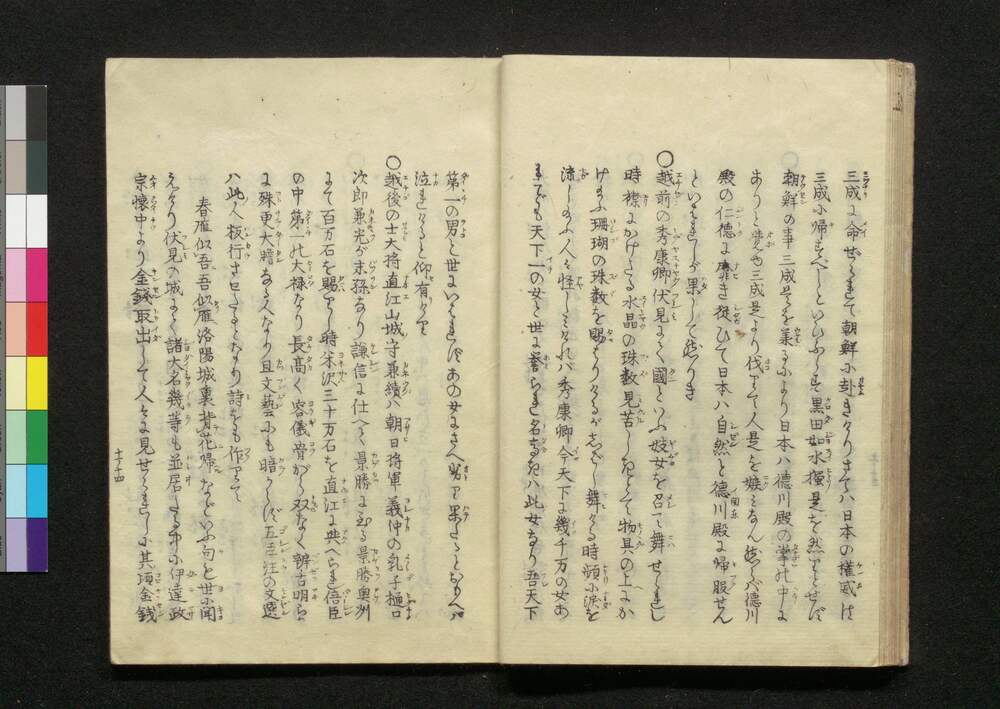 三成に命せられて朝鮮に赴きけりさては日本の權威は
三成に帰すべしといひあへり黒田如水獨是を然りとせず
朝鮮の事三成是を兼るより日本は徳川殿の掌の中に
ありと覚ゆ三成是より伐すて人是を嫉みなん然らば徳川
殿の仁徳に靡き従ひて日本は自然と徳川殿に帰服せん
といはれしが果して然りき
〇越前の秀康卿伏見にて國といふ妓女を召て舞せられし
時襟にかけたる水晶の珠数見苦しきとて物具の上にか
けたる珊瑚の珠数を賜はりけるがしばし舞ける時頻に涙を
流し給ふ人々怪しみければ秀康卿今天下に幾千万の女あ
れども天下一の女と世に誉られ名あるは此女なり吾天下
第一の男と世にいはれずあの女にさへ劣り果たるとなりへ
泣れけると仰有けり
〇越後の士大将直江山城守兼續は朝日将軍義仲の乳子樋口
次郎兼光が末孫なり謙信に仕へて景勝に至る景勝奥州
にて百万石を賜りし時米沢三十万石を直江に與へられ陪臣
の中第一の大禄なり長高く容儀骨がら双なく辨舌明らか
に殊更大膽なる人なり且文藝にも暗からず五臣注の文選
は此人板行させたるとなり詩をも作りて
春雁似吾吾似雁洛陽城裏背花帰などいふ句を世に聞
えけり伏見の城にて諸大名幾等も並居たる中に伊達政
宗懐中より金銭取出して人々に見せられしに其頃金銭